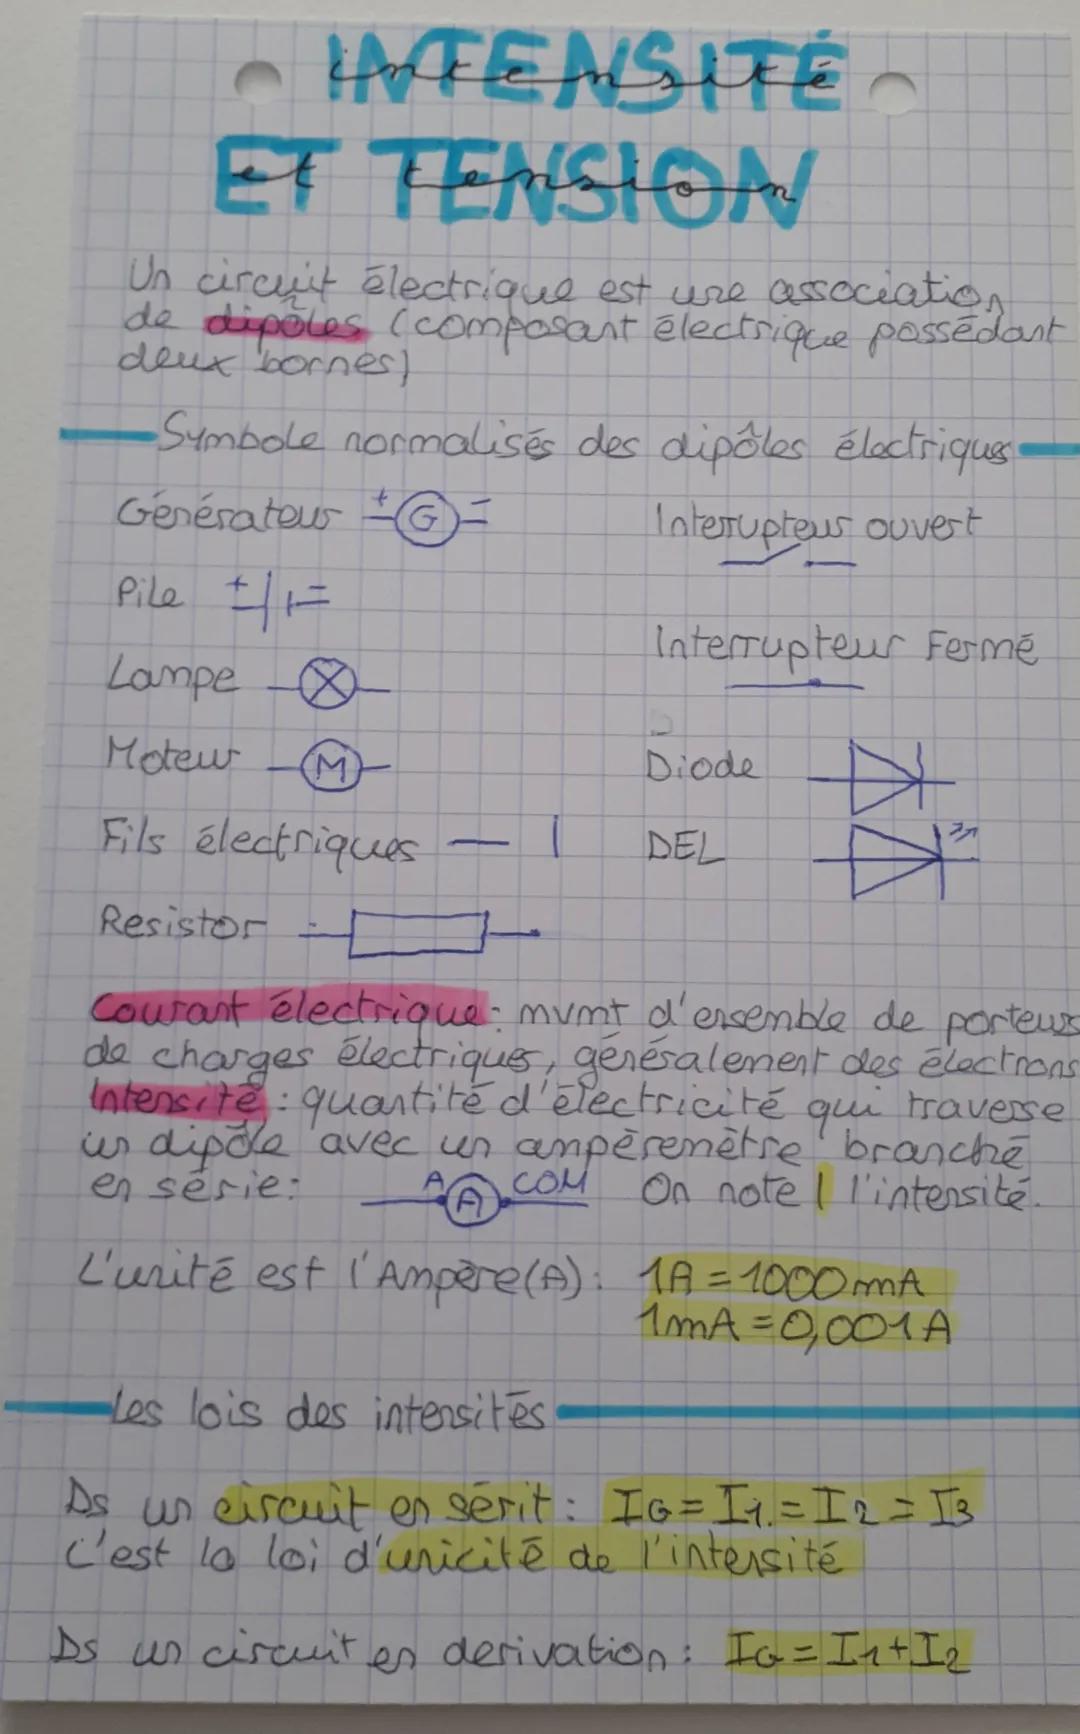 INTENSITÉ
intensité
ET TENSION
et tension
Un circuit électrique est une association
de dipôles (composant électrique possédant
deux bornes)
Symbole normalisés des dipôles électriques
Générateur + G -
Interrupteur ouvert
Pile + -
Interrupteur Fermé
Lampe
Moteur M
Diode
Fils électriques
DEL
Resistor
Courant électrique: mvmt d'ensemble de porteurs
de charges électriques, généralement des électrons
Intensité: quantité d'électricité qui traverse
un dipôle avec un ampèremètre branché
en série: A A COM On note I l'intensité.
L'unité est l'Ampère(A): 1A = 1000mA
1mA = 0,001A
Les lois des intensités
Ds un circuit en sérit: IG = I1 = I2 = I3
C'est la loi d'unicité de l'intensité
Ds un circuit en derivation: IG = I1 + I2